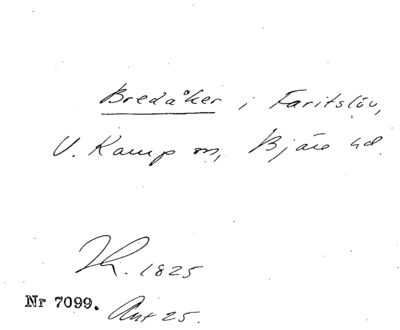 Bredåker i Faritslöv,
V. Karup sn, Bjäre hd.
1825
Nr 7099. Ant 25.